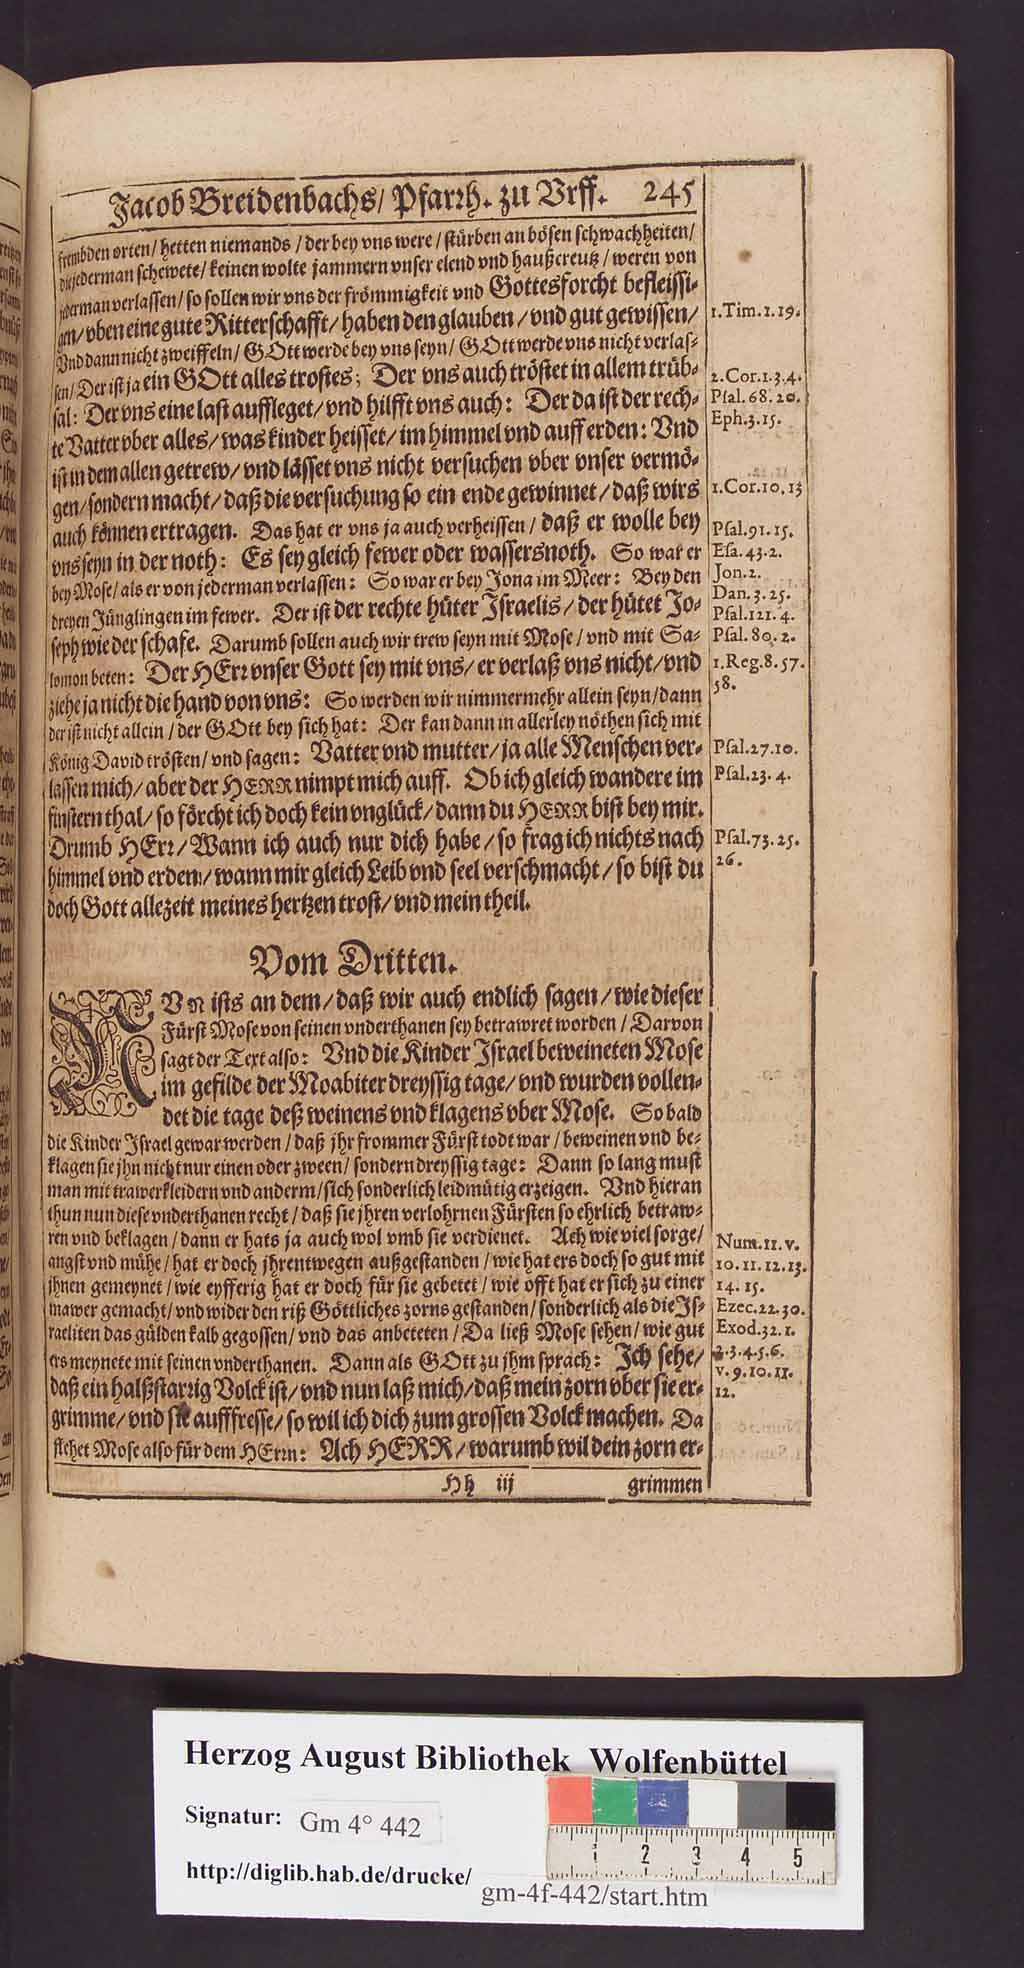 Jacob Breidenbachs/ Pfarrh. zu Vrff. 245
frembden orten/ hetten niemands/ der bey vns were/ stürben an bösen schwachheiten/
die jederman schewete/ keinen wolte jammern vnser elend vnd haußcreutz/ weren von
jederman verlassen/ so sollen wir vns der frömmigkeit vnd Gottesforcht befleissi-
gen/ vben eine gute Ritterschafft/ haben den glauben/ vnd gut gewissen/
Vnd dann nicht zweiffeln/ GOtt werde bey vns seyn/ GOtt werde vns nicht verlas-
sen/ Der ist ja ein GOtt alles trostes; Der vns auch tröstet in allem trüb-
sal: Der vns eine last auffleget/ vnd hilfft vns auch: Der da ist der rech-
te Vatter vber alles/ was kinder heisset/ im himmel vnd auff erden: Vnd
ist in dem allen getrew/ vnd lässet vns nicht versuchen vber vnser vermö-
gen/ sondern macht/ daß die versuchung so ein ende gewinnet/ daß wirs
auch können ertragen. Das hat er vns ja auch verheissen/ daß er wolle bey
vns seyn in der noth: Es sey gleich fewer oder wassersnoth. So war er
bey Mose/ als er von jederman verlassen: So war er bey Jona im Meer: Bey den
dreyen Jünglingen im fewer. Der ist der rechte hüter Israelis/ der hütet Jo-
seph wie der schafe. Darumb sollen auch wir trew seyn mit Mose/ vnd mit Sa-
lomon beten: Der HErr vnser Gott sey mit vns/ er verlaß vns nicht/ vnd
ziehe ja nicht die hand von vns: So werden wir nimmermehr allein seyn/ dann
der ist nicht allein/ der GOtt bey sich hat: Der kan dann in allerley nöthen sich mit
König David trösten/ vnd sagen: Vatter vnd mutter/ ja alle Menschen ver-
lassen mich/ aber der HERR nimpt mich auff. Ob ich gleich wandere im
finstern thal/ so förcht ich doch kein vnglück/ dann du HERR bist bey mir.
Drumb HErr/ Wann ich auch nur dich habe/ so frag ich nichts nach
himmel vnd erden/ wann mir gleich Leib vnd seel verschmacht/ so bist du
doch Gott allezeit meines hertzen trost/ vnd mein theil.
1.Tim.1.19.
2.Cor.1.3.4.
Psal.68.20.
Eph.3.15.
1.Cor.10.13
Psal.91.15.
Esa.43.2.
Jon.2.
Dan.3.25.
Psal.121.4.
Psal.80.2.
1.Reg.8.57.
58.
Psal.27.10.
Psal.23.4.
Psal.73.25.
26.
Vom Dritten.
NVn ists an dem/ daß wir auch endlich sagen/ wie dieser
Fürst Mose von seinen vnderthanen sey betrawret worden/ Darvon
sagt der Text also: Vnd die Kinder Israel beweineten Mose
im gefilde der Moabiter dreyssig tage/ vnd wurden vollen-
det die tage deß weinens vnd klagens vber Mose. So bald
die Kinder Israel gewar werden/ daß jhr frommer Fürst todt war/ beweinen vnd be-
klagen sie jhn nicht nur einen oder zween/ sondern dreyssig tage: Dann so lang must
man mit trawerkleidern vnd anderm/ sich sonderlich leidmütig erzeigen. Vnd hieran
thun nun diese vnderthanen recht/ daß sie jhren verlohrnen Fürsten so ehrlich betraw-
ren vnd beklagen/ dann er hats ja auch wol vmb sie verdienet. Ach wie viel sorge/
angst vnd mühe/ hat er doch jhrentwegen außgestanden/ wie hat ers doch so gut mit
jhnen gemeynet/ wie eyfferig hat er doch für sie gebetet/ wie offt hat er sich zu einer
mawer gemacht/ vnd wider den riß Göttliches zorns gestanden/ sonderlich als die Is-
raeliten das gülden kalb gegossen/ vnd das anbeteten/ Da ließ Mose sehen/ wie gut
ers meynete mit seinen vnderthanen. Dann als GOtt zu jhm sprach: Ich sehe/
daß ein halßstarrig Volck ist/ vnd nun laß mich/ daß mein zorn vber sie er-
grimme/ vnd sie aufffresse/ so wil ich dich zum grossen Volck machen. Da
flehet Mose also für dem HErrn: Ach HERR/ warumb wil dein zorn er-
Num.11.v.
10.11.12.13.
14.15.
Ezec.22.30.
Exod.32.1.
2.3.4.5.6.
v.9.10.11.
12.
Hh iij grimmen
Herzog August Bibliothek Wolfenbüttel
Signatur: Gm 4° 442
http://diglib.hab.de/drucke/
gm-4f-442/start.htm
1 2 3 4 5